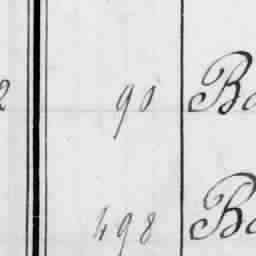 2 90 Ba
498 Ba